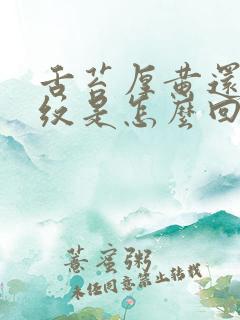 舌苔厚黄还
纹是怎么回
薏蜜粥
未经同意禁止转载